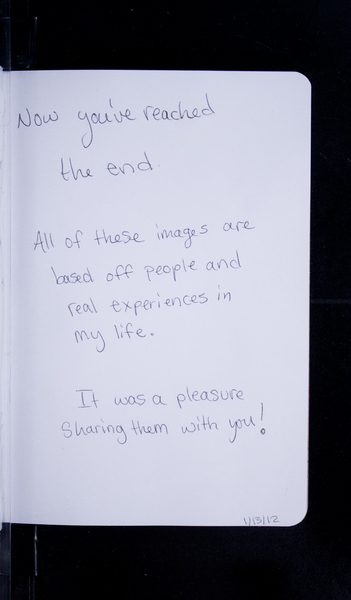 Now you've reached
the end.
All of these images are
based off people and
real experiences in
my life.
It was a pleasure
Sharing them with you!
1/13/12